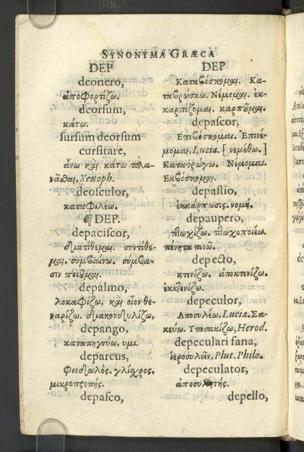 SYNONYMA GRÆCA
DEP
deonero,
ἀποφορτίζω.
deorsum,
κάτω.
sursum deorsum
cursitare,
ἄνω καὶ κάτω πλα-
νᾶσθαι, Xenoph.
deosculor,
καταφιλέω.
¶ DEP.
depaciscor,
διατίθεμαι. συντίθε-
μαι. συμβαίνω. σύμβα-
σιν ποιοῦμαι.
depalmo,
depango,
καταπηγνύω, υμι.
deparcus,
Φειδωλός. γλίσχρος.
μικροπρεπής.
depasco,
DEP
Καταβόσκομαι. Κα-
ταβρώσκω. Νέμομαι. ἐκ-
καρπίζομαι. καρποῦμαι.
depascor,
Ἐπιβόσκομαι. Ἐπινέ-
μομαι, Lucia. [νεμέθω.]
Κατατρώγω. Νέμομαι.
Ἐκβόσκομαι.
depastio,
ἐκκάρπωσις. νομή.
depaupero,
Πτωχίζω. πτωχοποιέω.
πένητα ποιῶ.
depecto,
κτενίζω. ἀποκτενίζω.
ἐκκτενίζω.
depeculor,
Ἀποσυλέω, Lucia. Σκε-
Herod.
depeculari fana,
ἱεροσυλεῖν, Plut. Philo.
depeculator,
depello,